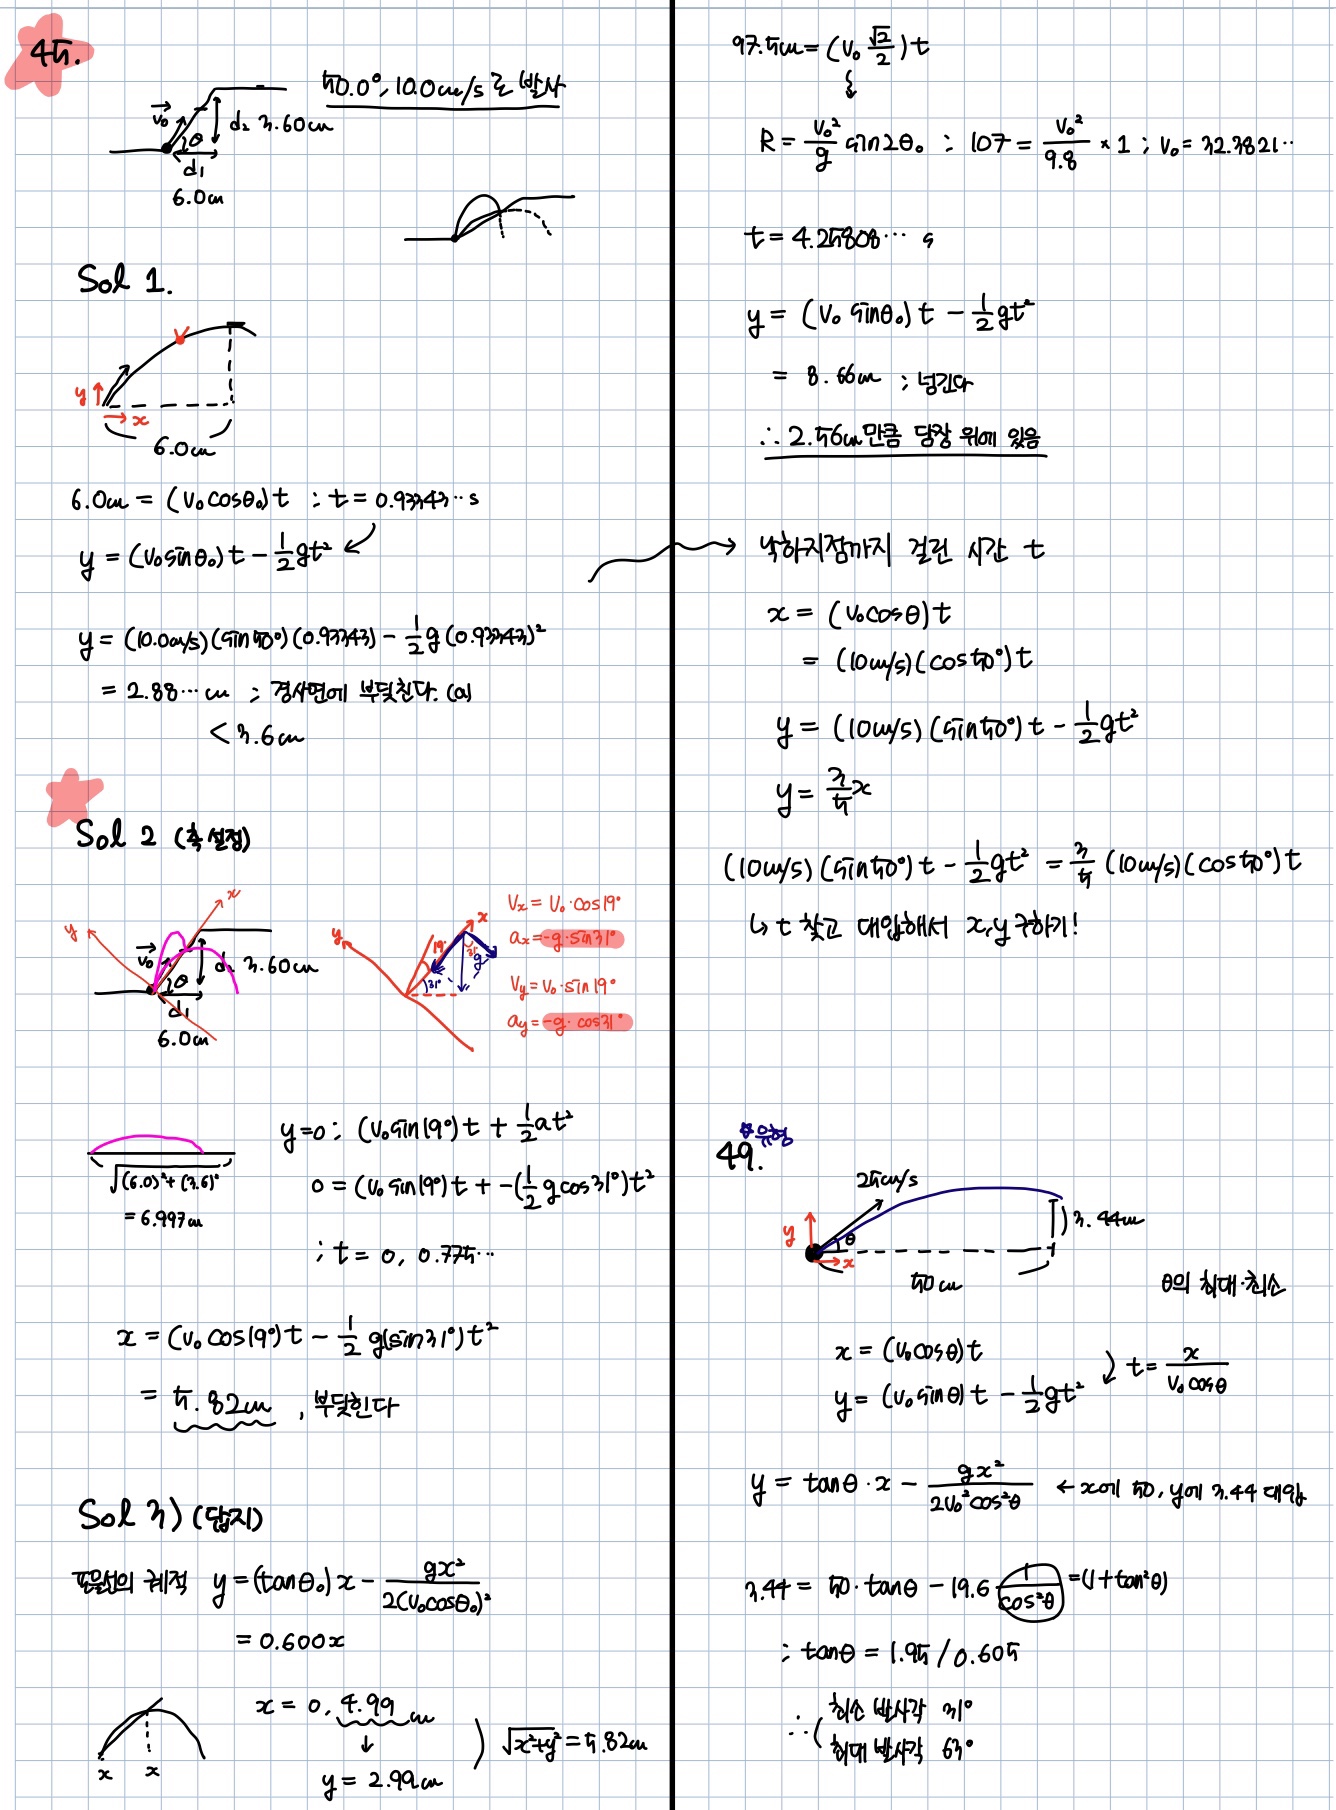 45.
50.0°, 10.0m/s로 발사
v₀ θ d₂ 3.60m
d₁
6.0m
Sol 1.
y
x
6.0m
6.0m = (v₀cosθ₀)t : t = 0.93343‥s
y = (v₀sinθ₀)t - 1/2 gt²
y = (10.0m/s)(sin50°)(0.93343) - 1/2 g(0.93343)²
= 2.88… m ; 경사면에 부딪친다. (a)
< 3.6m
Sol 2 (축 설정)
y x
v₀ θ d₂ 3.60m
d₁
6.0m
y x
19°
31°
g
Vx = V₀·cos19°
ax = -g·sin31°
Vy = V₀·sin19°
ay = -g·cos31°
√(6.0)²+(3.6)²
= 6.997m
y=0 ; (v₀sin19°)t + 1/2 at²
0 = (v₀ sin19°)t + -(1/2 gcos31°)t²
; t = 0, 0.775‥
x = (v₀ cos19°)t - 1/2 g(sin31°)t²
= 5.82m , 부딪힌다
Sol 3) (답지)
포물선의 궤적 y = (tanθ₀)x - gx²/2(v₀cosθ₀)²
= 0.600x
x = 0, 4.99m
↓
y = 2.99m
) √x²+y² = 5.82m
x x
97.5m = (v₀ √2/2)t
R = v₀²/g sin2θ₀ : 107 = v₀²/9.8 × 1 ; v₀ = 32.3821‥
t = 4.25808… s
y = (v₀ sinθ₀)t - 1/2 gt²
= 8.66m ; 넘긴다
∴ 2.56m만큼 담장 위에 있음
→ 낙하지점까지 걸린 시간 t
x = (v₀cosθ)t
= (10m/s)(cos50°)t
y = (10m/s)(sin50°)t - 1/2 gt²
y = 3/5 x
(10m/s)(sin50°)t - 1/2 gt² = 3/5 (10m/s)(cos50°)t
↳ t 찾고 대입해서 x,y구하기!
☆유형
49.
25m/s
y θ x
3.44m
50m
θ의 최대·최소
x = (v₀cosθ)t
y = (v₀sinθ)t - 1/2 gt²
) t = x/v₀cosθ
y = tanθ·x - gx²/2v₀²cos²θ ← x에 50, y에 3.44 대입
3.44 = 50·tanθ - 19.6 · 1/cos²θ =(1+tan²θ)
; tanθ = 1.95 / 0.605
∴ ( 최소 발사각 31°
최대 발사각 63°